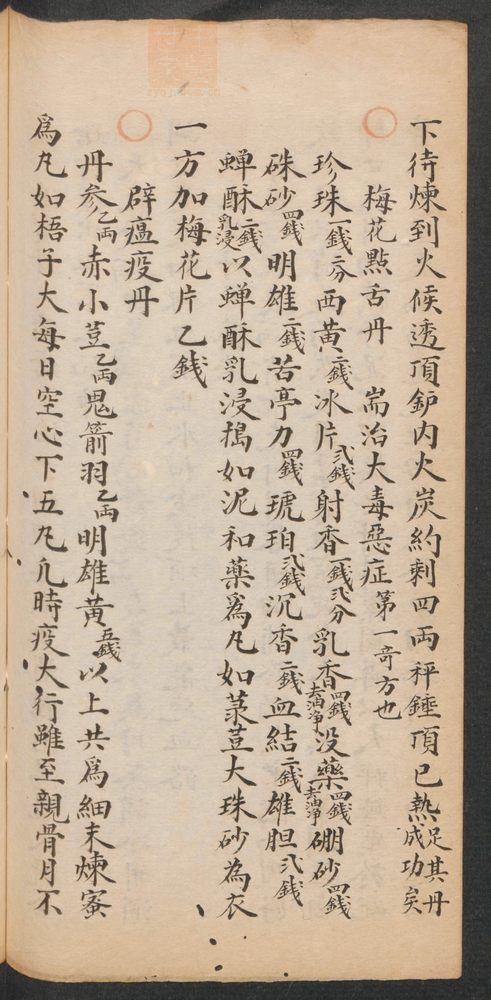 下待煉到火候透頂鈩内火炭約剩四兩秤錘頂已熱足其丹成功矣
梅花點舌丹 耑治大毒惡症第一奇方也
珍珠一錢二分西黄二錢冰片弍錢射香一錢弍分乳香四錢去油净没藥四錢去油净硼砂四錢
硃砂四錢明雄二錢苦亭力四錢琥珀弍錢沉香二錢血結二錢雄胆弍錢
蟬酥二錢乳浸以蟬酥乳浸搗如泥和藥爲凡如菉荳大珠砂為衣
一方加梅花片乙錢
辟瘟疫丹
丹参乙兩赤小荳乙兩鬼箭羽乙兩明雄黄五錢以上共爲細末煉蜜
爲凡如梧子大每日空心下五凡凢時疫大行雖至親骨月不